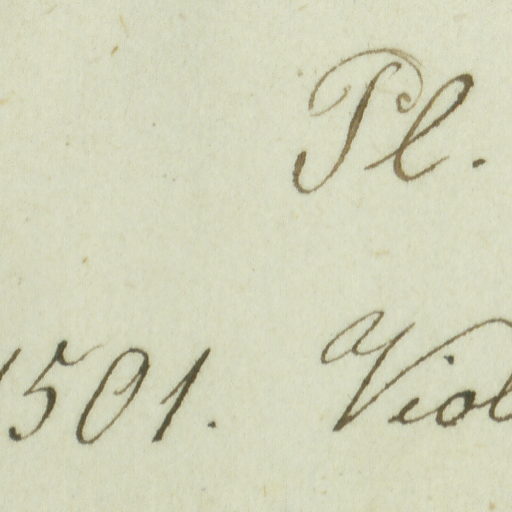 Pl.
1501. Viol